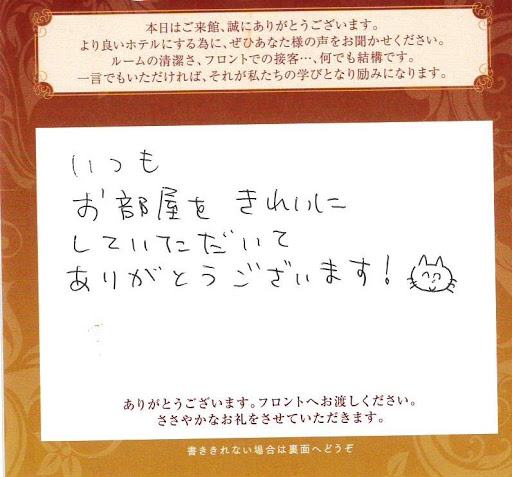 本日はご来館、誠にありがとうございます。
より良いホテルにする為に、ぜひあなた様の声をお聞かせください。
ルームの清潔さ、フロントでの接客…、何でも結構です。
一言でもいただければ、それが私たちの学びとなり励みになります。
いつも
お部屋を きれいに
していただいて
ありがとうございます!
ありがとうございます。フロントへお渡しください。
ささやかなお礼をさせていただきます。
書ききれない場合は裏面へどうぞ